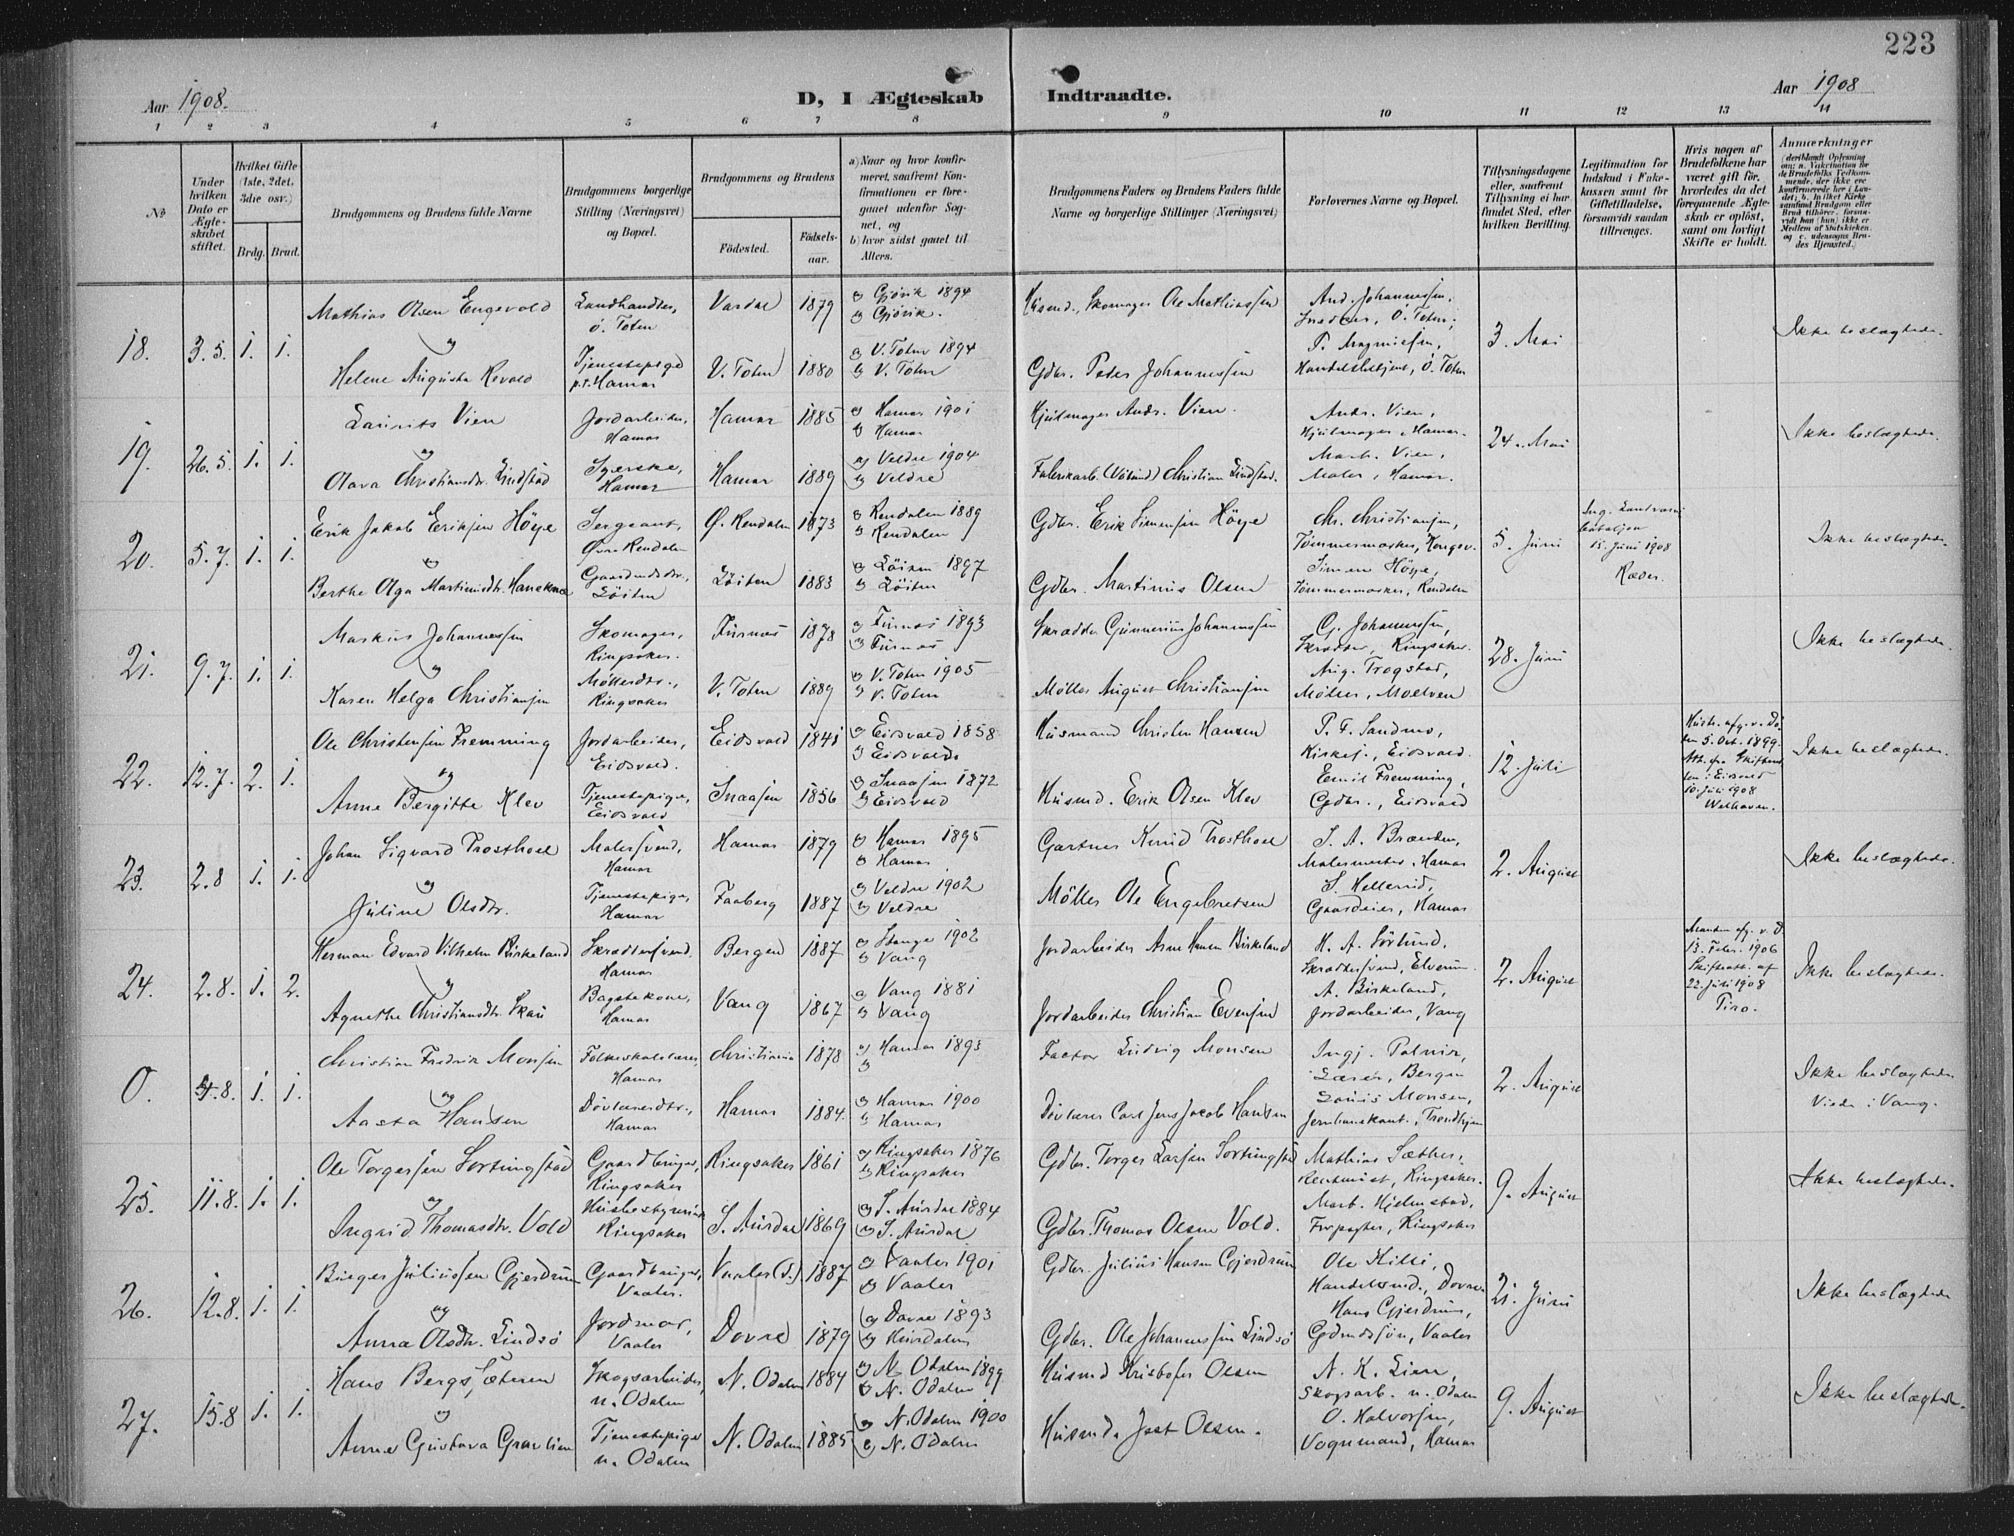 223
Aar 1908.
D, I Ægteskab Indtraadte.
Aar 1908
1 2 3 4 5 6 7 8 9 10 11 12 13 14
No
Under hvilken Dato er Ægteskabet stiftet.
Hvilket Gifte (1ste, 2det, 3die osv.)
Brdg. Brud.
Brudgommens og Brudens fulde Navne
Brudgommens borgerlige Stilling (Næringsvei) og Bopæl.
Brudgommens og Brudens
Fødested. Fødselsaar.
a) Naar og hvor konfirmeret, saafremt Konfirmationen er foregaaet udenfor Sognet, og
b) hvor sidst gaaet til Alters.
Brudgommens Faders og Brudens Faders fulde Navne og borgerlige Stillinger (Næringsvei)
Forlovernes Navne og Bopæl.
Tillysningsdagene eller, saafremt Tillysning ei har fundet Sted, efter hvilken Bevilling.
Legitimation for Indskud i Enkekassen samt for Giftetilladelse, forsaavidt saadan tiltrænges.
Hvis nogen af Brudefolkene har været gift før, hvorledes da det foregaaende Ægteskab er opløst, samt om lovligt Skifte er holdt.
Anmærkninger
18. 3.5. 1. 1.
Mathias Olsen Engevold
og
Helene Augusta Revold
Landhandler, ø. Toten
Tjenestepige p.t. Hamar
Vardal 1879
V. Toten 1880
a) Gjövik 1894
b) Gjövik.
a) V. Toten 1894
b) V. Toten
Husmd., Skomager Ole Mathiassen
Gdbr. Peder Johannessen
And. Johannessen,
Snedker, Ö. Toten;
P. Magnussen,
Handelsbetjent, Ö. Toten
3. Mai
Ikke beslægtede.
19. 26.5. 1. 1.
Laurits Vien
og
Olava Christiansdtr. Lindstad
Jordarbeider, Hamar
Syerske, Hamar
Hamar 1885
Hamar 1889
a) Hamar 1901
b) Hamar
a) Veldre 1904
b) Veldre
Hjulmager Andr. Vien.
Fabrikarb. Christian Lindstad.
Andr. Vien,
Hjulmager, Hamar.
Mart. Vien,
Maler, Hamar.
24. Mai
Ikke beslægtede.
20. 5.7. 1. 1.
Erik Jakob Eriksen Höye
og
Berthe Olga Martinusdtr. Haneknæ
Sergeant, Øvre Rendalen
Gaardmdsdtr., Löiten
Ø. Rendalen 1873
Löiten 1883
a) Rendalen 1889
b) Rendalen
a) Löiten 1897
b) Löiten
Gdbr. Erik Simensen Höye
Gdbr. Martinus Olsen
Chr. Christiansen,
Tömmermærker, Kongsv.
Simen Höye,
Tömmermærker, Rendalen
5. Juni
Ing. Landværns
bataljon
15. Juni 1908
Ræder.
Ikke beslægtede.
21. 9.7. 1. 1.
Markus Johannessen
og
Karen Helga Christiansen
Skomager, Ringsaker.
Möllerdtr., Ringsaker
Furnes 1878
V. Toten 1889
a) Furnes 1893
b) Furnes
a) V. Toten 1905
b) V. Toten
Skrædder Gunnerius Johannessen
Möller August Christiansen
G. Johannessen,
Skrædder, Ringsaker.
Aug. Trogstad,
Möller, Moelven
28. Juni
Ikke beslægtede.
22. 12.7. 2. 1.
Ole Christensen Fremming
og
Anne Bergitte Klev
Jordarbeider, Eidsvold.
Tjenestepige, Eidsvold
Eidsvold 1841
Snaasen 1856
a) Eidsvold 1858
b) Eidsvold
a) Snaasen 1872
b) Eidsvold
Husmand Christen Hansen
Husmd. Erik Olsen Klev
P. F. Sandmo,
Kirkesj., Eidsvold.
Emil Fremming,
Gdbr., Eidsvold
12. Juli
Hustr. afg. v. Dö-
den 5. Okt. 1899.
Att. fra Skifteret-
ten i Eidsvold
10. Juli 1908
Welhaven.
Ikke beslægtede.
23. 2.8 1. 1.
Johan Sigvard Trosthoel
og
Juline Olsdtr.
Malersvend, Hamar
Tjenestepige, Hamar
Hamar 1879
Faaberg 1887
a) Hamar 1895
b) Hamar
a) Veldre 1902
b) Veldre
Gartner Knud Trosthoel
Möller Ole Engebretsen
J. A. Brænden,
Malermester, Hamar
S. Hellerud,
Gaardeier, Hamar
2. August
Ikke beslægtede.
24. 2.8. 1. 2.
Herman Edvard Vilhelm Birkeland
og
Agnethe Christiansdtr. Skau
Skræddersvend, Hamar
Bagstekone, Hamar
Bergen 1887
Vang 1867
a) Stange 1902
b) Vang
a) Vang 1881
b) Vang
Jordarbeider Arne Hansen Birkeland
Jordarbeider Christian Evensen
H. A. Sörlund,
Skræddersvend, Elverum
A. Birkeland,
Jordarbeider, Vang
2. August
Manden afg. v. D.
13. Febr. 1906
Skifteatt. af
22. Juli 1908
Tiro.
Ikke beslægtede.
0. 4.8. 1. 1.
Christian Fredrik Monsen
og
Aasta Hansen
Folkeskolelærer Hamar
Dövlærerdtr., Hamar
Christiania 1878
Hamar 1884.
a) Hamar 1893
b)
a) Hamar 1900
b) Hamar
Factor Ludvig Monsen
Dövlærer Carl Jens Jakob Hansen
Ingj. Palnir,
Lærer, Bergen
Louis Monsen,
Jernbanekont., Trondhjem
2. August
Ikke beslægtede
Viede i Vang.
25. 11.8. 1. 1.
Ole Torgersen Sortungstad
og
Ingrid Thomasdtr. Vold
Gaardbruger, Ringsaker
Husbestyrerinde Ringsaker
Ringsaker 1861
S. Aurdal 1869
a) Ringsaker 1876
b) Ringsaker
a) S. Aurdal 1884
b) S. Aurdal
Gdbr. Torger Larsen Sortungstad
Gdbr. Thomas Olsen Vold.
Mathias Sæther,
Rentenist, Ringsaker.
Mart. Hjelmstad,
Forpagter, Ringsaker
9. August
Ikke beslægtede.
26. 12.8. 1. 1.
Birger Juliussen Gjerdrum
og
Anna Olsdtr. Lindsö
Gaardbruger, Vaaler.
Jordmor, Vaaler
Vaaler (S.) 1887
Dovre 1879
a) Vaaler 1901
b) Vaaler
a) Dovre 1893
b) Hurdalen
Gdbr. Julius Hansen Gjerdrum
Gdbr. Ole Johannessen Lindsö
Ole Killi,
Handelsmd., Dovre
Hans Gjerdrum,
Gdmdssön, Vaaler
21. Juni
Ikke beslægtede
27. 15.8 1. 1.
Hans Bergs. Sæteren
og
Anne Gustava Gravlien
Skogsarbeider, n. Odalen
Tjenestepige n. Odalen
N. Odalen 1884
N. Odalen 1885
a) N. Odalen 1899
b) N. Odalen
a) N. Odalen 1900
b) N. Odalen
Husmd Kristofer Olsen
Husmd. Jost Olsen.
N. K. Lien,
Skogsarb. n. Odalen
O. Halvorsen,
Vognmand, Hamar
9. August
Ikke beslægtede.